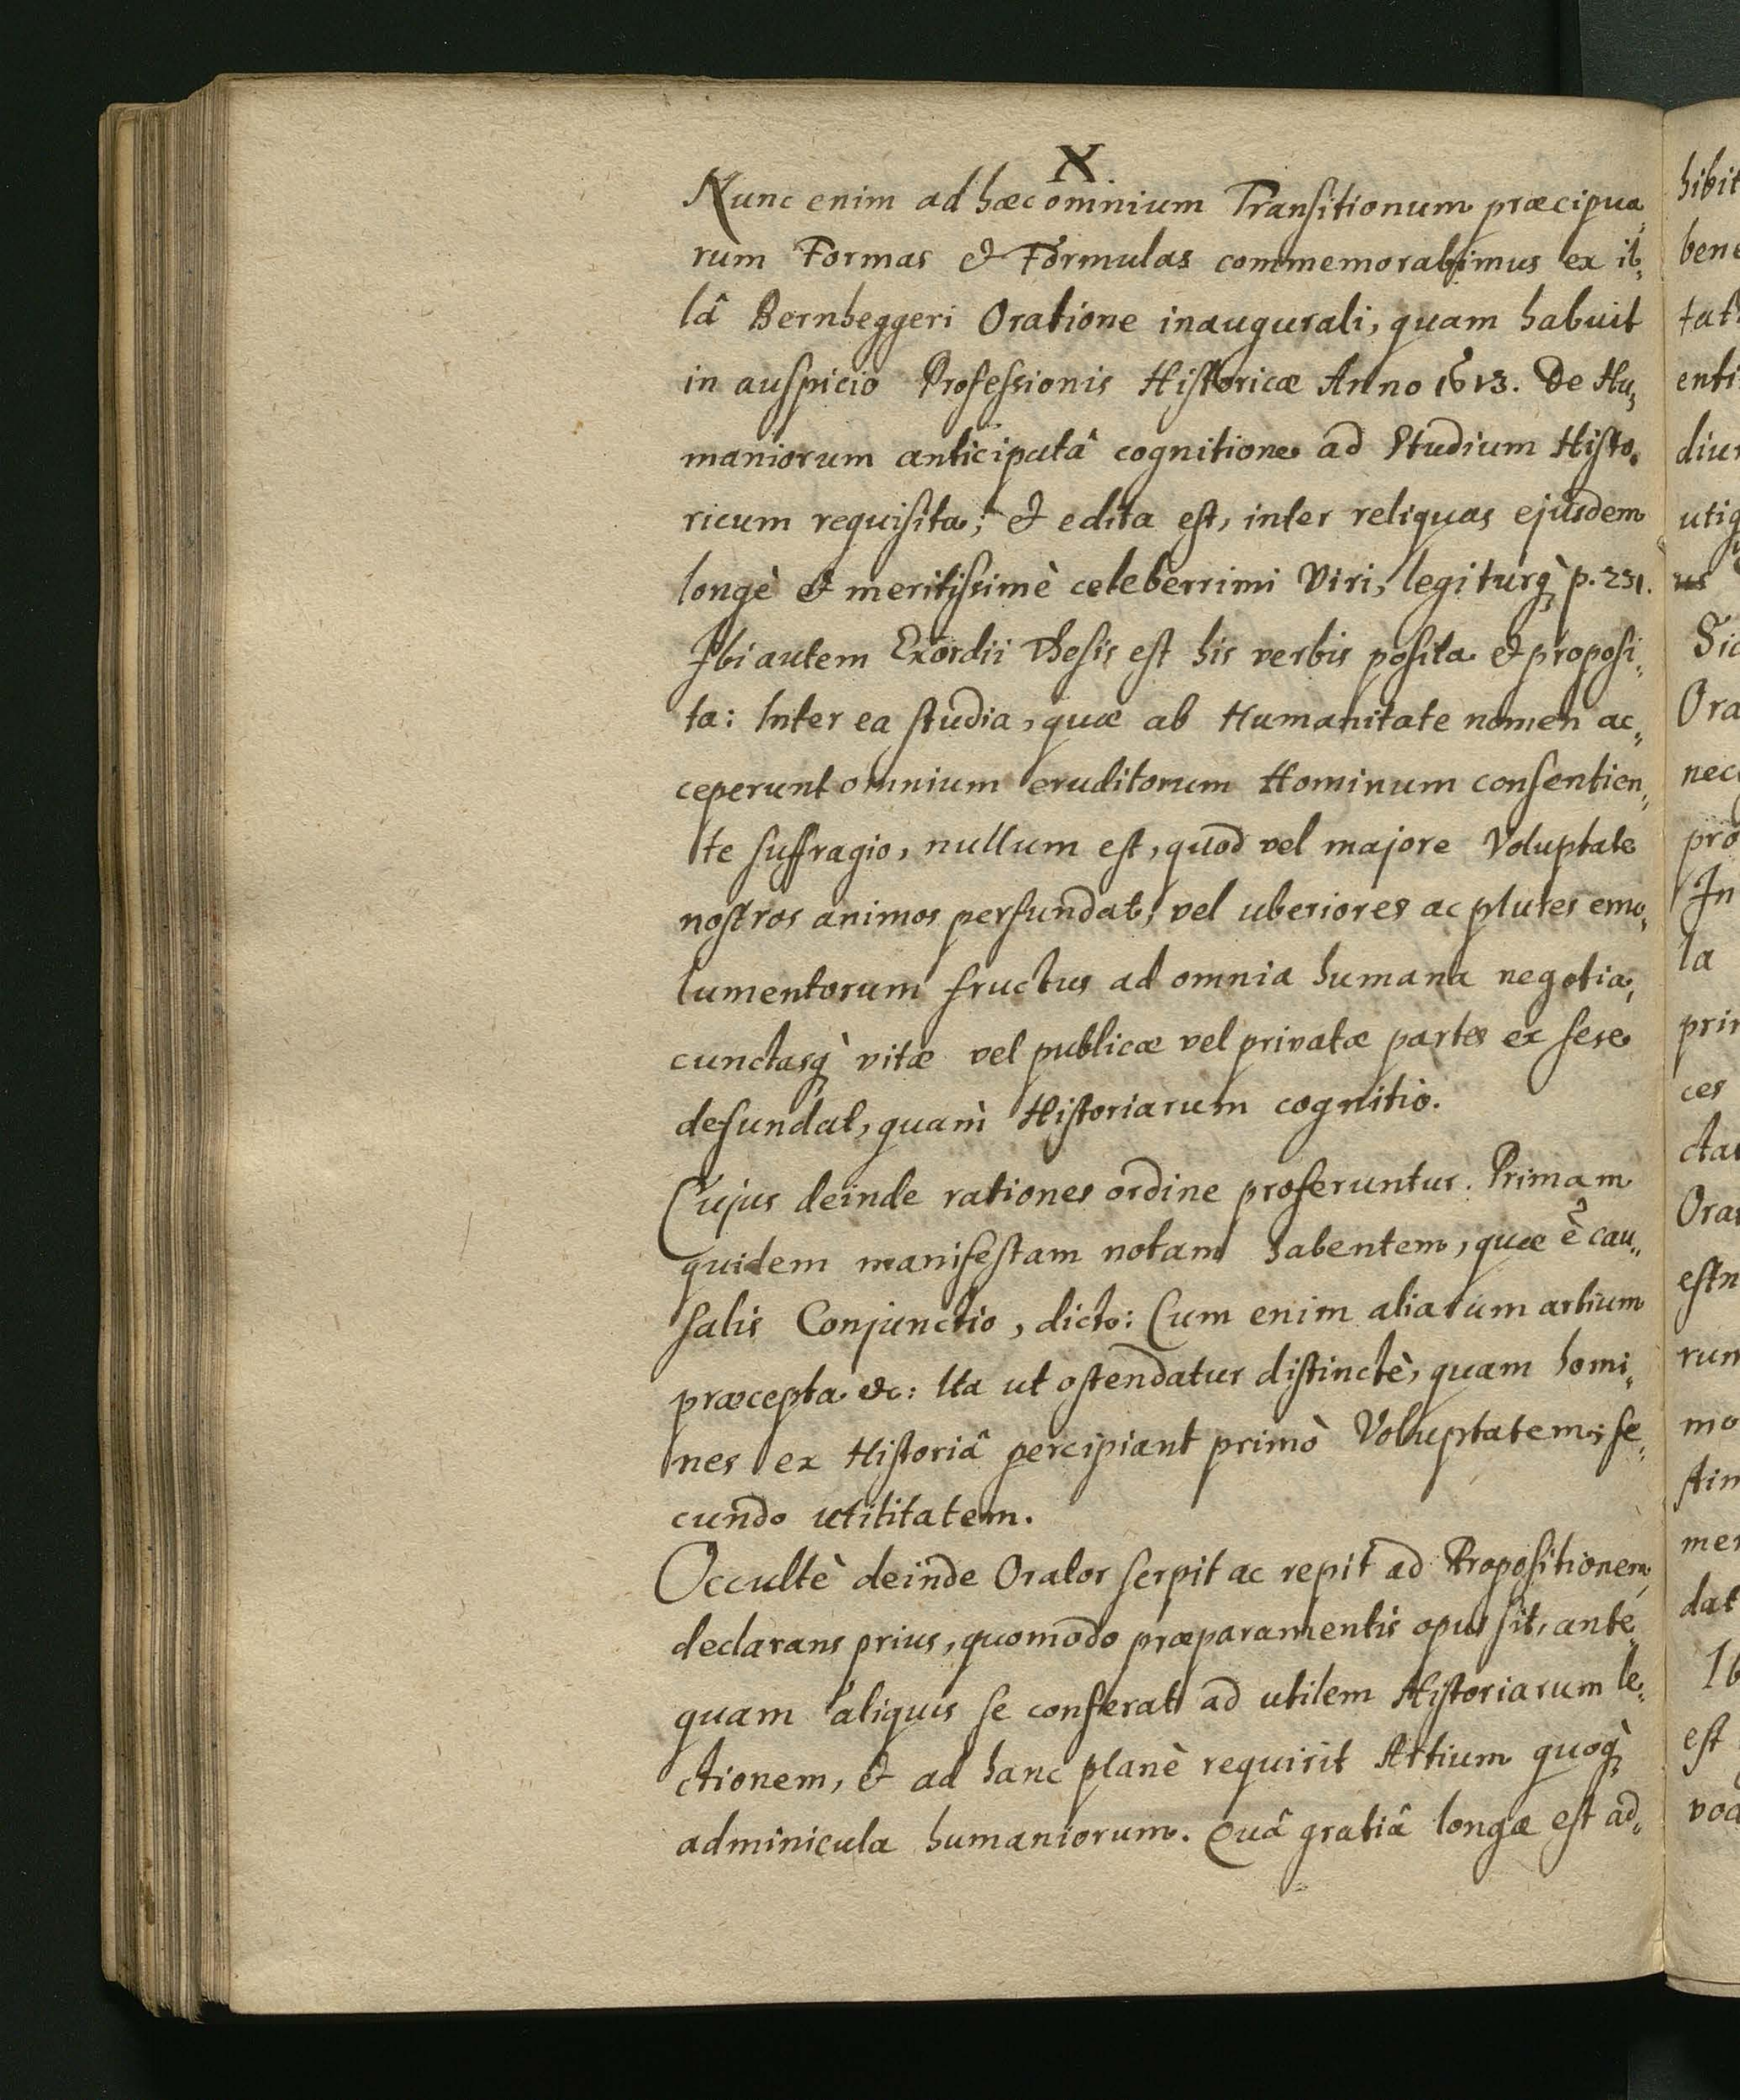 X.
Nunc enim ad hæc omnium Transitionum præcipua„
rum Formas & Formulas commemorabimus ex il„
lâ Bernheggeri Oratione inaugurali, quam habuit
in auspicio Professionis Historicæ Anno 1613. De Hu„
maniorum anticipatâ cognitione ad Studium Histo„
ricum requisita; & edita est, inter reliquas ejusdem
longè & meritissimè celeberrimi Viri, legiturq̀ p. 231.
Ibi autem Exordii Thesis est his verbis posita & proposi„
ta: Inter ea studia, quæ ab Humanitate nomen ac„
ceperunt omnium eruditorum Hominum consentien„
te suffragio, nullum est, quod vel majore Voluptate
nostros animos perfundat, vel uberiores ac plures emo„
lumentorum fructus ad omnia humana negotia,
cunctasq̀ vitæ vel publicæ vel privatæ partes ex sese
defundat, quam̀ Historiarum cognitio.
Cujus deinde rationes ordine proferuntur. Primam
quidem manifestam notam habentem, quæ ē cau„
salis Conjunctio, dicto: Cum enim aliarum artium
præcepta &c: Ita ut ostendatur distinctè, quam homi„
nes ex Historiâ percipiant primò Voluptatem, se„
cundo utilitatem.
Occultè deinde Orator serpit ac repit ad Propositionem,
declarans prius, quomodo præparamentis opus sit, ante„
quam aliquis se conferat ad utilem Historiarum le„
ctionem, & ad hanc planè requirit Artium quoq̀
adminicula humaniorum. Quâ gratiâ longæ est ad„
hibit
bene
tat
enti
diu
utiq
us
Sic
Ora
nec
pro
In
la
prin
ces
cta
Ora
estn
rum
mo
stin
mer
dat
Ib
est
voc